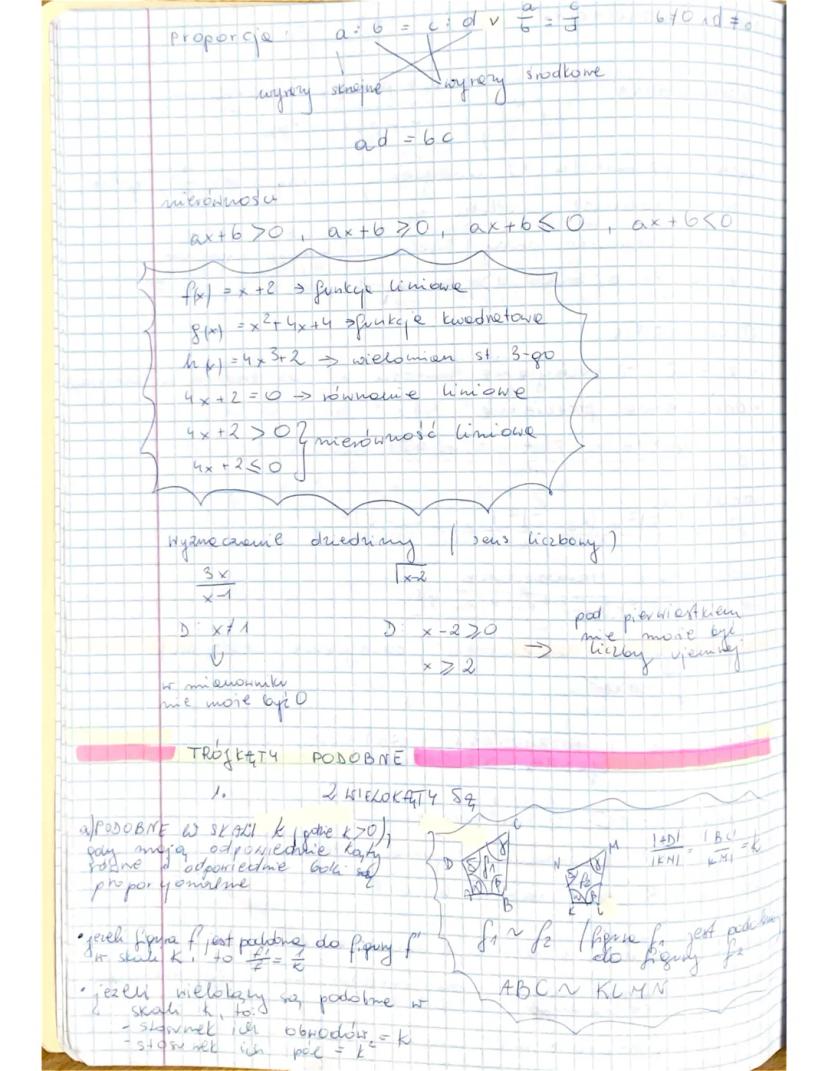 proporcja: a : b = c : d v a/b = c/d b≠0 i d≠0
wyrazy skrajne wyrazy środkowe
ad = bc
nierówności
ax+b>0, ax+b⩾0, ax+b≤0, ax+b<0
f(x) = x+2 → funkcja liniowa
g(x) = x²+4x+4 → funkcja kwadratowa
h(x) = 4x³+2 → wielomian st. 3-go
4x+2=0 → równanie liniowe
4x+2>0 } nierówność liniowa
4x+2≤0
wyznaczanie dziedziny (sens liczbowy)
3x/x-1 √x-2
D: x≠1 D: x-2⩾0 → pod pierwiastkiem nie może być liczby ujemnej
x⩾2
w mianowniku
nie może być 0
TRÓJKĄTY PODOBNE
1. 2 WIELOKĄTY SĄ
a) PODOBNE W SKALI k (gdzie k>0),
gdy mają odpowiednie kąty
równe a odpowiednie boki są
proporcjonalne
D C B f₁ N M K L f₂
|AD|/|KN| = |BC|/|LM| = k
• jeżeli figura f jest podobna do figury f'
w skali k, to
f₁ ~ f₂ (figura f₁ jest podobna
do figury f₂
ABC ~ KLMN
• jeżeli wielokąty są podobne w
skali k, to:
- stosunek ich obwodów = k
- stosunek ich pól = k²